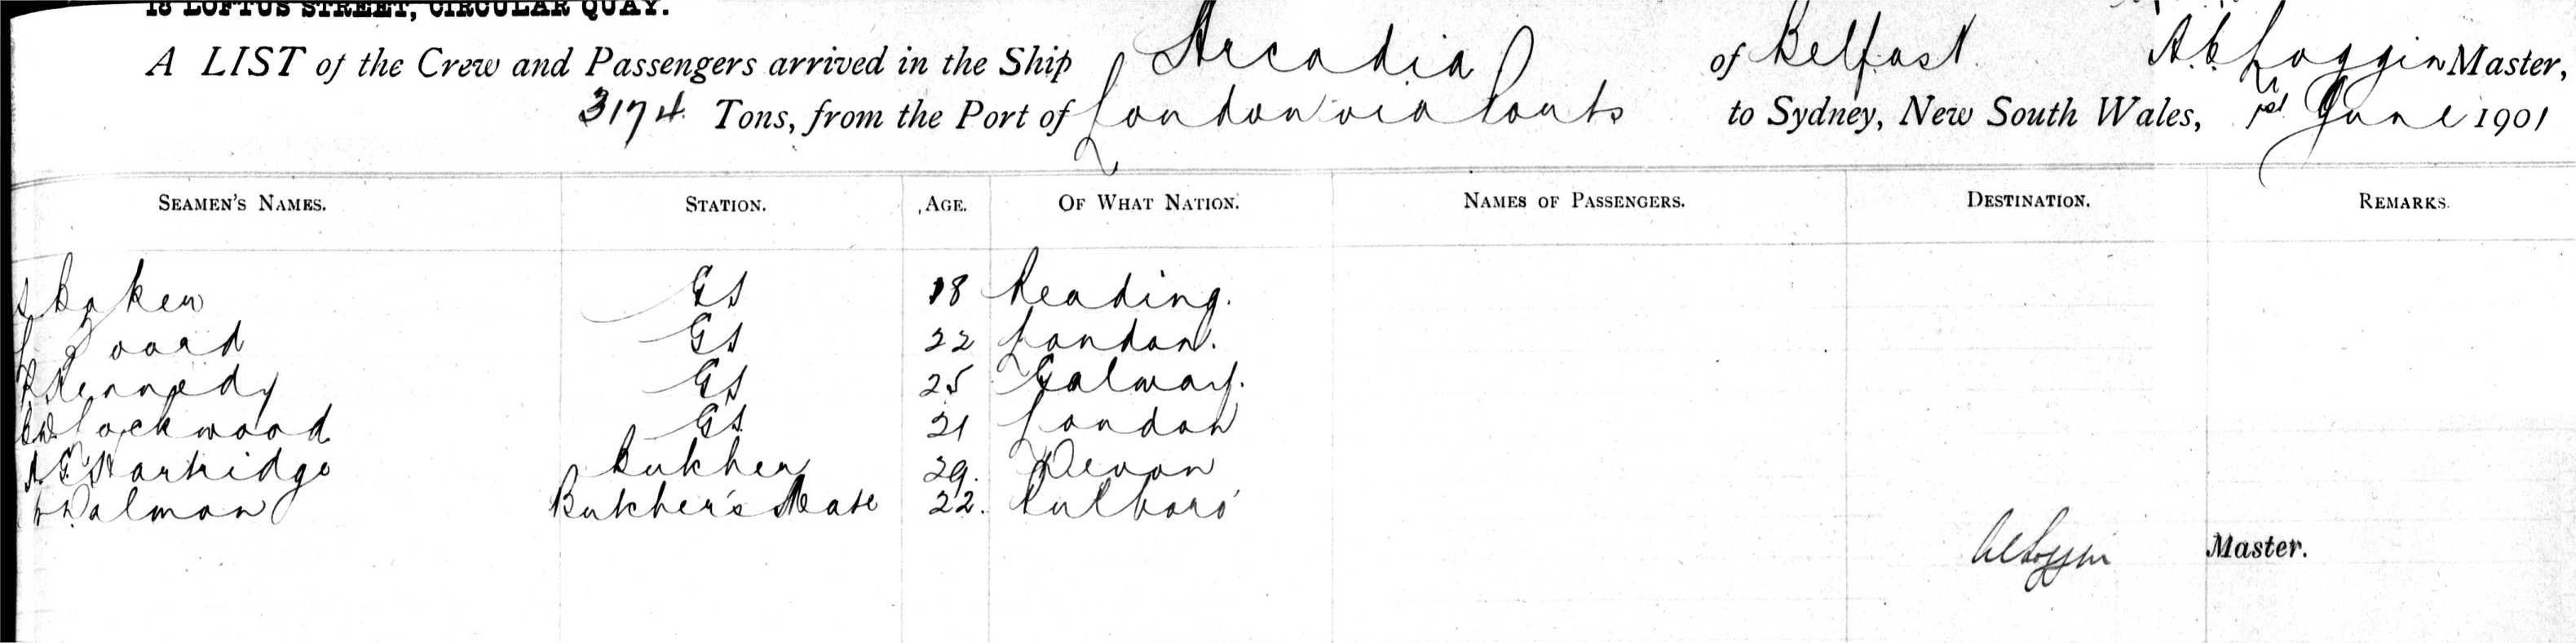 18 LOFTUS STREET, CIRCULAR QUAY.
A LIST of the Crew and Passengers arrived in the Ship Arcadia of Belfast A.C. Loggin Master,
3174 Tons, from the Port of London via Ports to Sydney, New South Wales, 1st June 1901
SEAMEN'S NAMES. STATION. AGE. OF WHAT NATION. NAMES OF PASSENGERS. DESTINATION. REMARKS.
Baker GS 18 Reading.
GS 22 London.
Kennedy GS 25 Galway.
Lockwood GS 21 London
Partridge Butcher 29. Devon
Salmon Butcher's Mate 22. Pulboro'
Master.